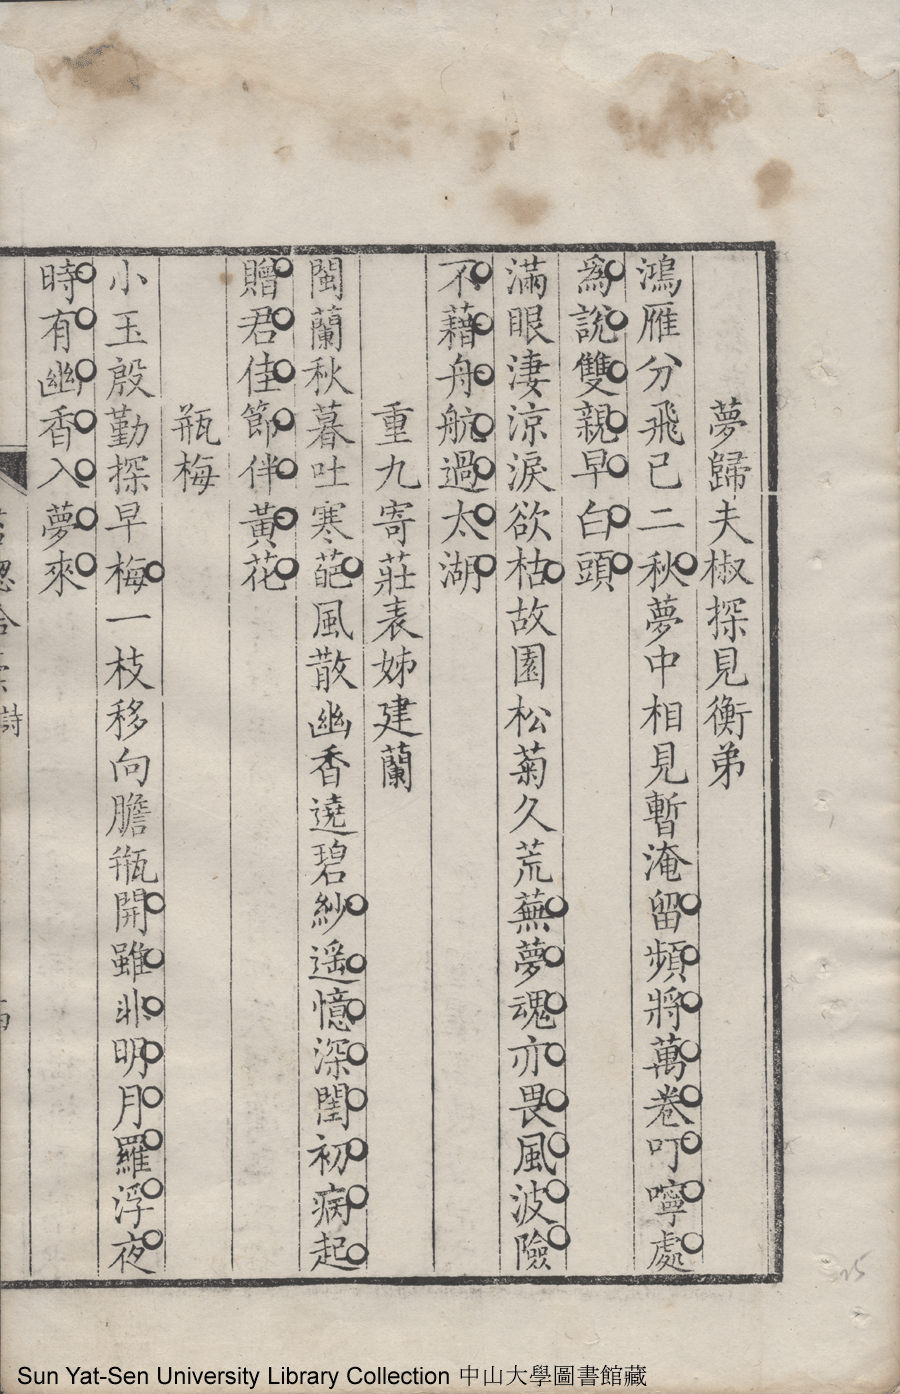 夢歸夫椒探見衡弟
鴻雁分飛已二秋夢中相見暫淹留頻將萬卷叮嚀處
爲說雙親早白頭
滿眼淒涼淚欲枯故園松菊久荒蕪夢魂亦畏風波險
不藉舟航過太湖
重九寄莊表姊建蘭
閩蘭秋暮吐寒葩風散幽香遶碧紗遥憶深閨初病起
贈君佳節伴黃花
瓶梅
小玉殷勤探早梅一枝移向膽瓶開雖非明月羅浮夜
時有幽香入夢來
詩
25
Sun Yat-Sen University Library Collection 中山大學圖書館藏